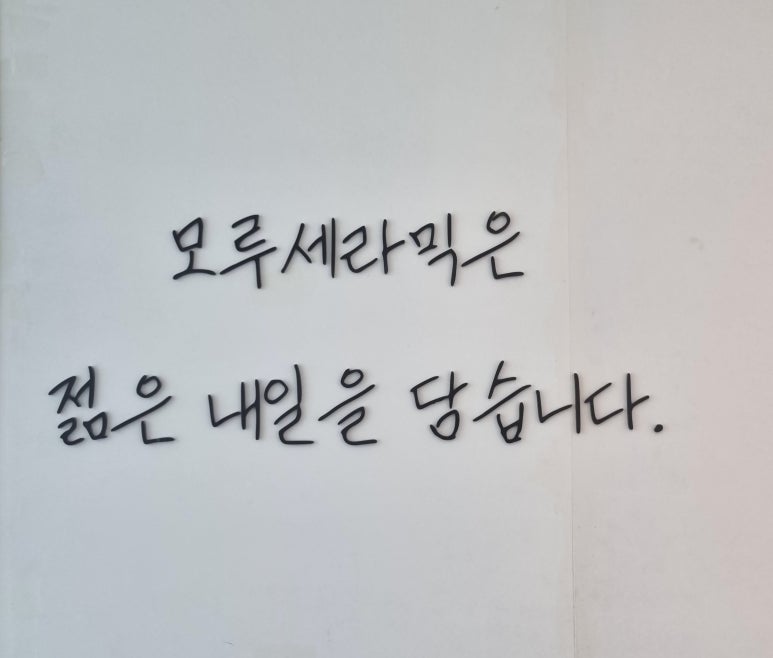 모루세라믹은
젊은 내일을 담습니다.